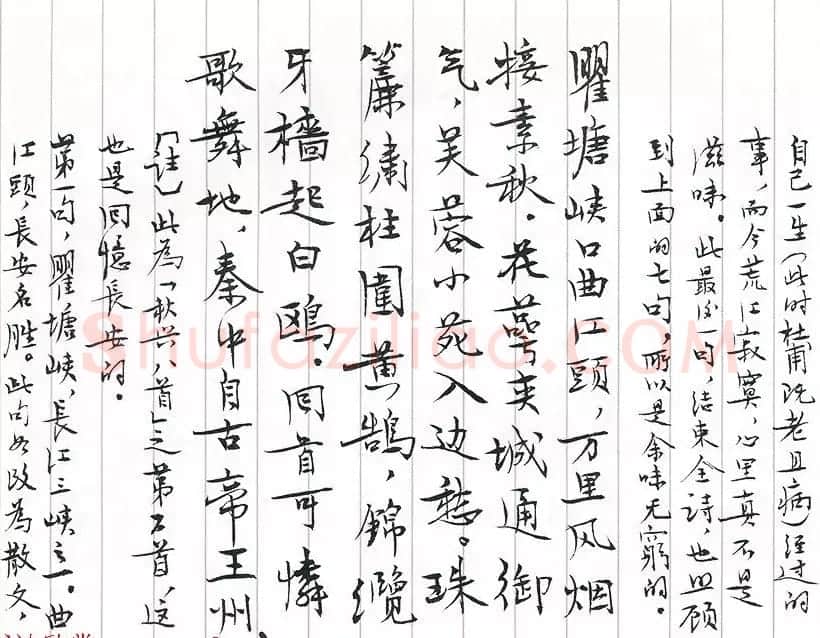 自己一生(此时杜甫既老且病)经过的
事，而今荒江寂寞，心里真不是
滋味。此最后一句，结束全诗，也回顾
到上面的七句，所以是余味无窮的。
瞿塘峡口曲江頭，万里风烟
接素秋。花萼夹城通御
气，芙蓉小苑入边愁。珠
簾绣柱圍黄鹄，錦纜
牙檣起白鷗。回首可憐
歌舞地，秦中自古帝王州。
「註」此為「秋兴八首」之第六首，这
也是回憶長安的。
第一句，瞿塘峡，長江三峡之一。曲
江頭，長安名胜。此句如改為散文，
shufaziliao.COM